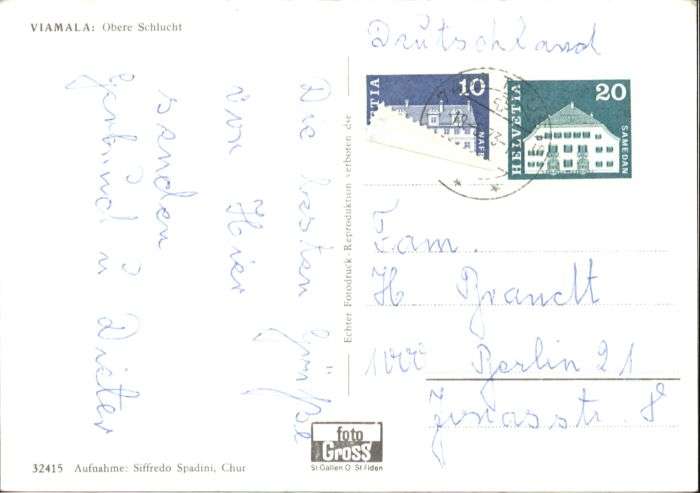 VIAMALA: Obere Schlucht
Die besten Grüße
von Hier
sanden
Gertrud u Dieter
32415 Aufnahme: Siffredo Spadini, Chur
Echter Fotodruck Reproduktion verboten
foto
Gross
St. Gallen O St Fiden
Deutschland
10
NAEF
20
HELVETIA
SAMEDAN
Fam.
H Brandt
1000 Berlin 21
str. 8